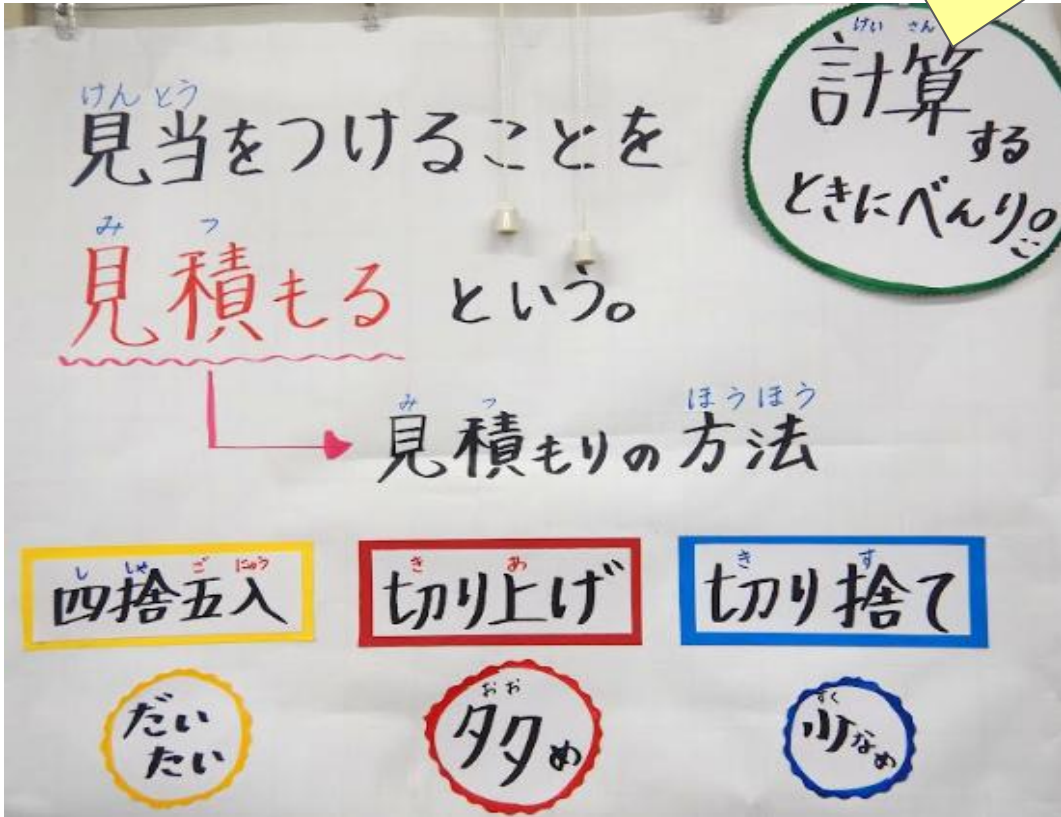 けんとう
見当をつけることを
みつ
見積もる という。
けいさん
計算する
ときにべんり。
みつ ほうほう
見積もりの方法
ししゃごにゅう
四捨五入
きあ
切り上げ
きす
切り捨て
だい
たい
おお
多め
すく
少なめ